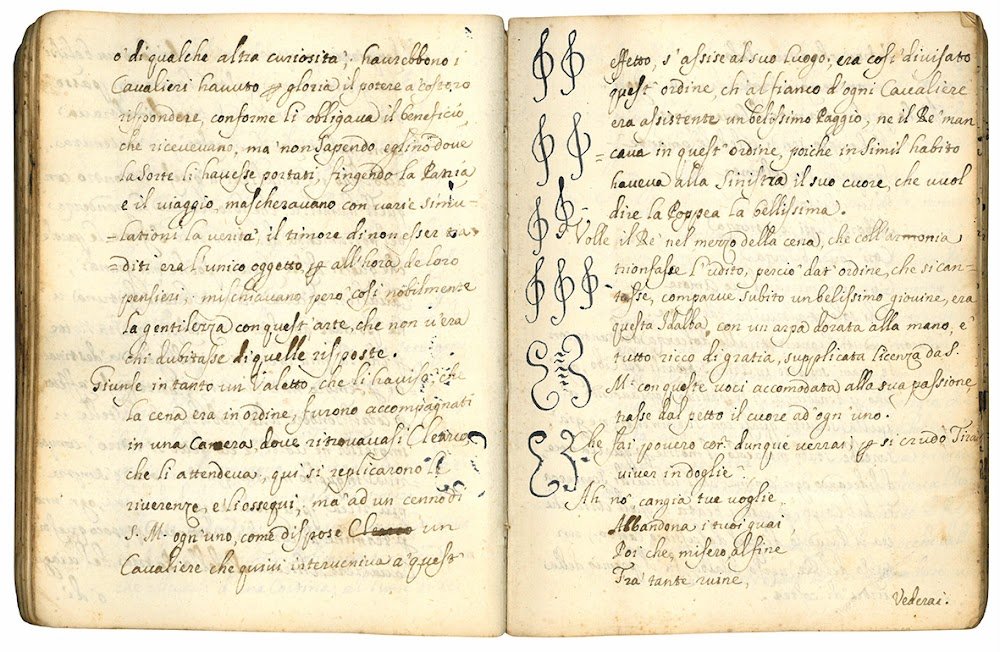 o' di qualche altra curiosita', haurebbono i
Cavalieri havuto ꝑ gloria il potere a' costoro
rispondere, conforme li obligava il beneficio,
che ricevevano, ma' non sapendo eglino dove
la sorte li havesse portati, fingendo la Patria
e il viaggio, mascheravano con varie simu-
-lationi la verita', il timore di non esser tra
-diti era l'unico oggetto ꝑ all'hora de loro
pensieri, mischiavano pero' cosi nobilmente
la gentilezza con quest'arte, che non v'era
chi dubitasse di quelle risposte.
Giunse in tanto un Valetto, che li haviso', che
la cena era in ordine, furono accompagnati
in una Camera, dove ritrovavasi Clearco
che li attendeva, qui si replicarono le
riverenze, e li ossequi, ma' ad un cenno di
S. M. ogn'uno, come dispose un
Cavaliere che quivi interveniva a' quest
effetto, s'assise al suo luogo; era cosi divisato
quest'ordine, ch'al fianco d'ogni Cavaliere
era assistente un bellissimo Paggio, ne il Re' man
-cava in quest'ordine, poiche in simil habito
haveva alla sinistra il suo cuore, che vuol
dire la Poppea la bellissima.
Volle il Re' nel mezzo della cena, che coll'armonia
trionfasse l'udito, percio' dat'ordine, che si can-
-tasse, comparve subito un belissimo giovine, era
questa Idalba, con un arpa dorata alla mano, e'
tutto ricco di gratia, supplicata licenza da S.
M. con queste voci accomodata alla sua passione,
trasse dal petto il cuore ad'ogn'uno.
Che fai povero cor dunque verrai; ꝑ si crudo Tira
viver in doglie
Ah no' cangia tue voglie
Abbandona i tuoi guai
Poi che, misero, al fine
Tra' tante ruine,
Vederai.